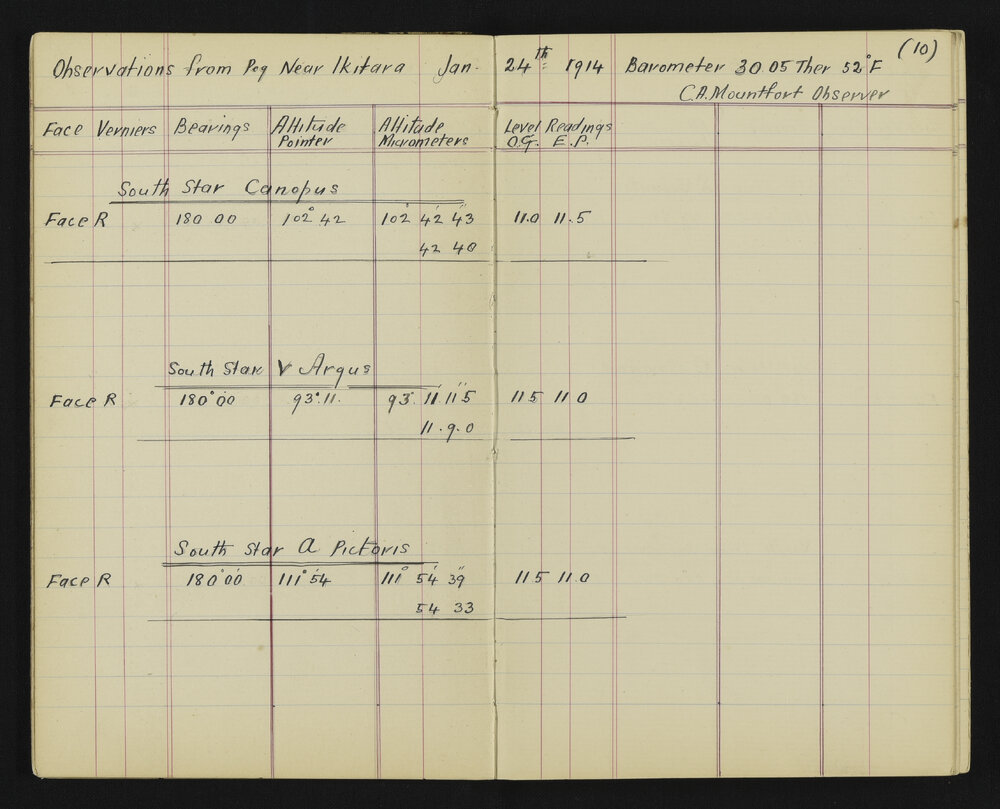 (10)
Observations from Peg Near Ikitara Jan. 24th 1914 Barometer 30.05 Ther 52°F
C.A.Mountfort Observer
Face Verniers Bearings Altitude Pointer Altitude Micrometers Level Readings O.G. E.P.
South Star Canopus
Face R 180 00 102° 42 102° 42' 43" 11.0 11.5
42 40
South Star V Argus
Face R 180°00' 93°.11. 93°. 11' 11"5 11 5 11 0
11.9.0
South Star a Pictoris
Face R 180°00' 111°54' 111° 54' 39" 11 5 11.0
54 33